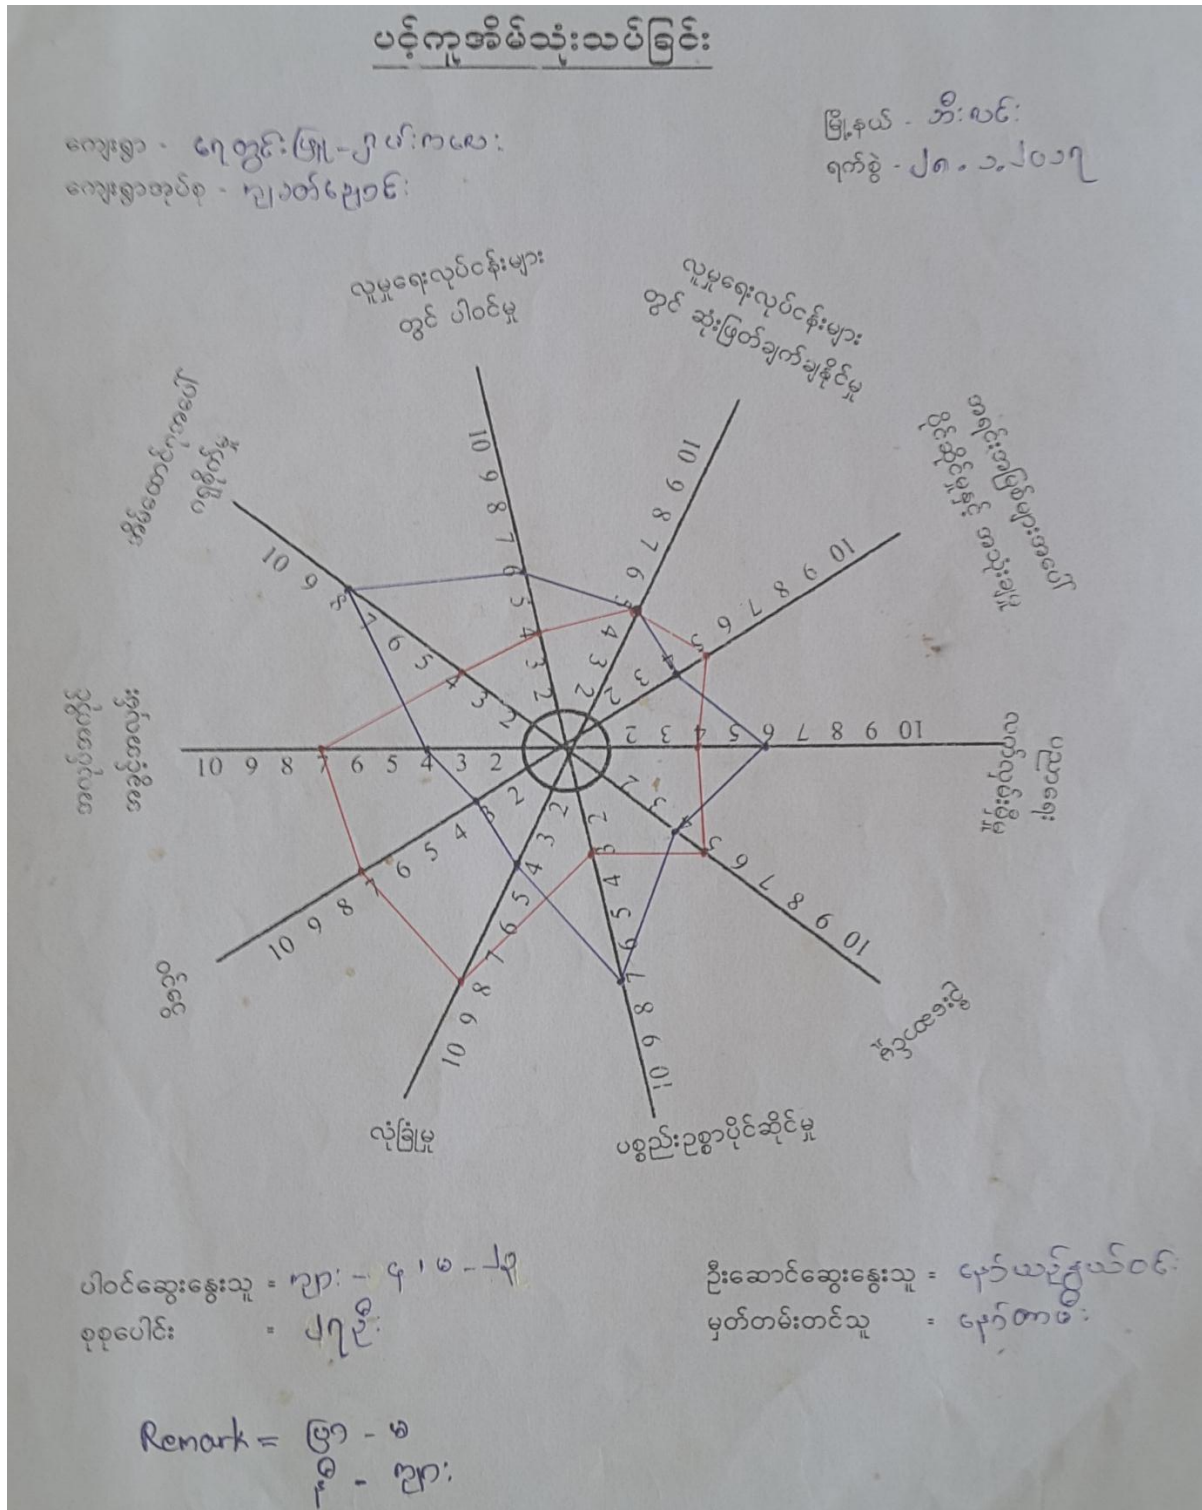 ပင့်ကူအိမ်သုံးသပ်ခြင်း
ကျေးရွာ - ရေတွင်းဖြူ - ရှမ်းကလေး
ကျေးရွာအုပ်စု -
မြို့နယ် - ဘီးလင်း
ရက်စွဲ - ၂၈.၁.၂၀၁၇
လူမှုရေးလုပ်ငန်းများ
တွင် ပါဝင်မှု
လူမှုရေးလုပ်ငန်းများ
တွင် ဆုံးဖြတ်ချက်ချနိုင်မှု
အရင်းအမြစ်များအပေါ်
ပိုင်ဆိုင်မှုနှင့် အသုံးချမှု
ပညာရေး
လက်လှမ်းမှီမှု
ပစ္စည်းဥစ္စာပိုင်ဆိုင်မှု
လုံခြုံမှု
ဝင်ငွေ
အလုပ်အကိုင်
အိမ်ထောင်စုအပေါ်
ဂရုစိုက်မှု
10 9 8 7 6 5 4 3 2
10 9 8 7 6 5 4 3 2
10 9 8 7 6 5 4 3 2
10 9 8 7 6 5 4 3 2
10 9 8 7 6 5 4 3 2
10 9 8 7 6 5 4 3 2
10 9 8 7 6 5 4 3 2
10 9 8 7 6 5 4 3 2
10 9 8 7 6 5 4 3 2
10 9 8 7 6 5 4 3 2
ပါဝင်ဆွေးနွေးသူ = ကျား - ၄ ၊ မ - ၂၃
စုစုပေါင်း = ၂၇ဦး
ဦးဆောင်ဆွေးနွေးသူ = နော်ယဉ်နွယ်ဝင်း
မှတ်တမ်းတင်သူ = နော်တာဖီး
Remark = ပြာ - မ
နီ - ကျား